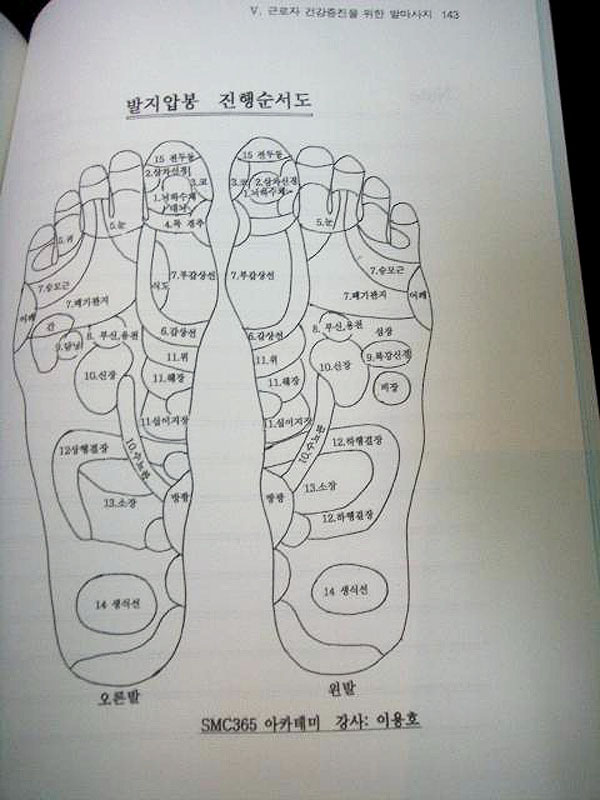 Ⅴ. 근로자 건강증진을 위한 발마사지 143
발지압봉 진행순서도
15 전두동
2.삼차신경
3.코
1.뇌하수체
대뇌
4.목 경추
5.귀
5.눈
7.승모근
7.폐기관지
어깨
간
식도
7.부갑상선
8. 부신,용천
6.갑상선
11.위
10.신장
11.췌장
11십이지장
10.수뇨관
12상행결장
13.소장
방광
14 생식선
오른발
15 전두동
3.코
2.삼차신경
1.뇌하수체
5.눈
7.부갑상선
7.승모근
7.폐기관지
어깨
6.갑상선
8. 부신,용천
심장
11.위
9.복강신경
10.신장
11.췌장
비장
11.십이지장
10.수뇨관
12.하행결장
13.소장
방광
12.하행결장
14 생식선
왼발
SMC365 아카데미 강사: 이용호